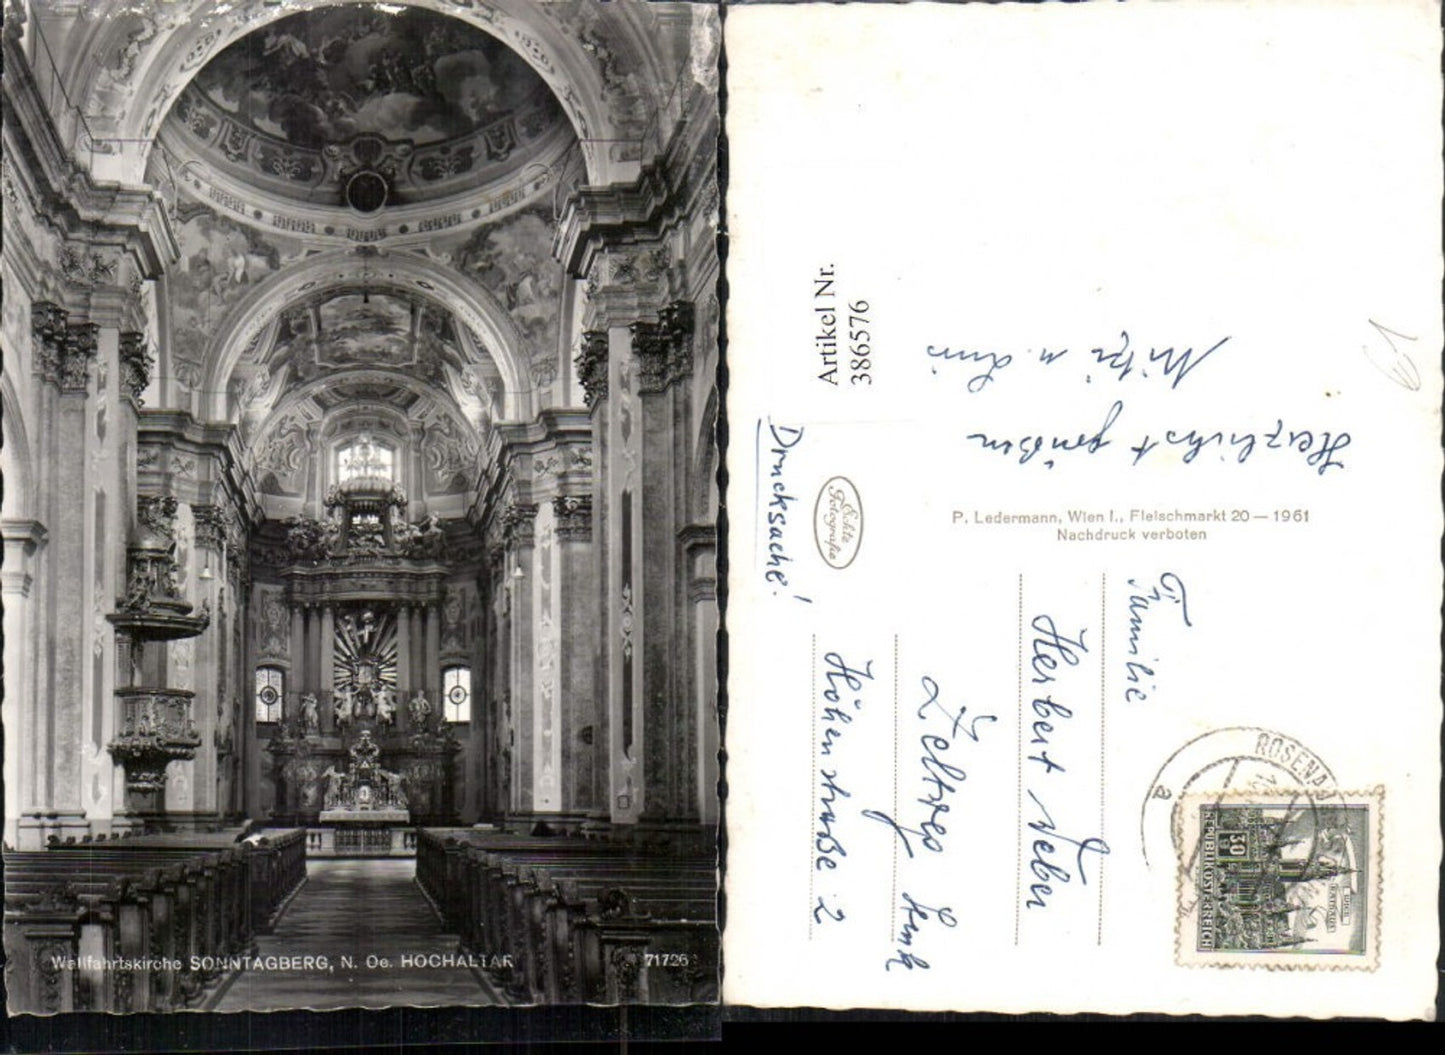 Wallfahrtskirche SONNTAGBERG, N. Oe. HOCHALTAR
71726
Artikel Nr.
386576
Herzlichst grüßen
Mitzi u. Luis
Drucksache!
Echte
Fotografie
P. Ledermann, Wien I., Fleischmarkt 20 — 1961
Nachdruck verboten
Familie
Herbert Weber
Zeltweg
Höhenstraße 2
ROSENAU
a
30
REPUBLIK ÖSTERREICH
WIEN
RATHAUS